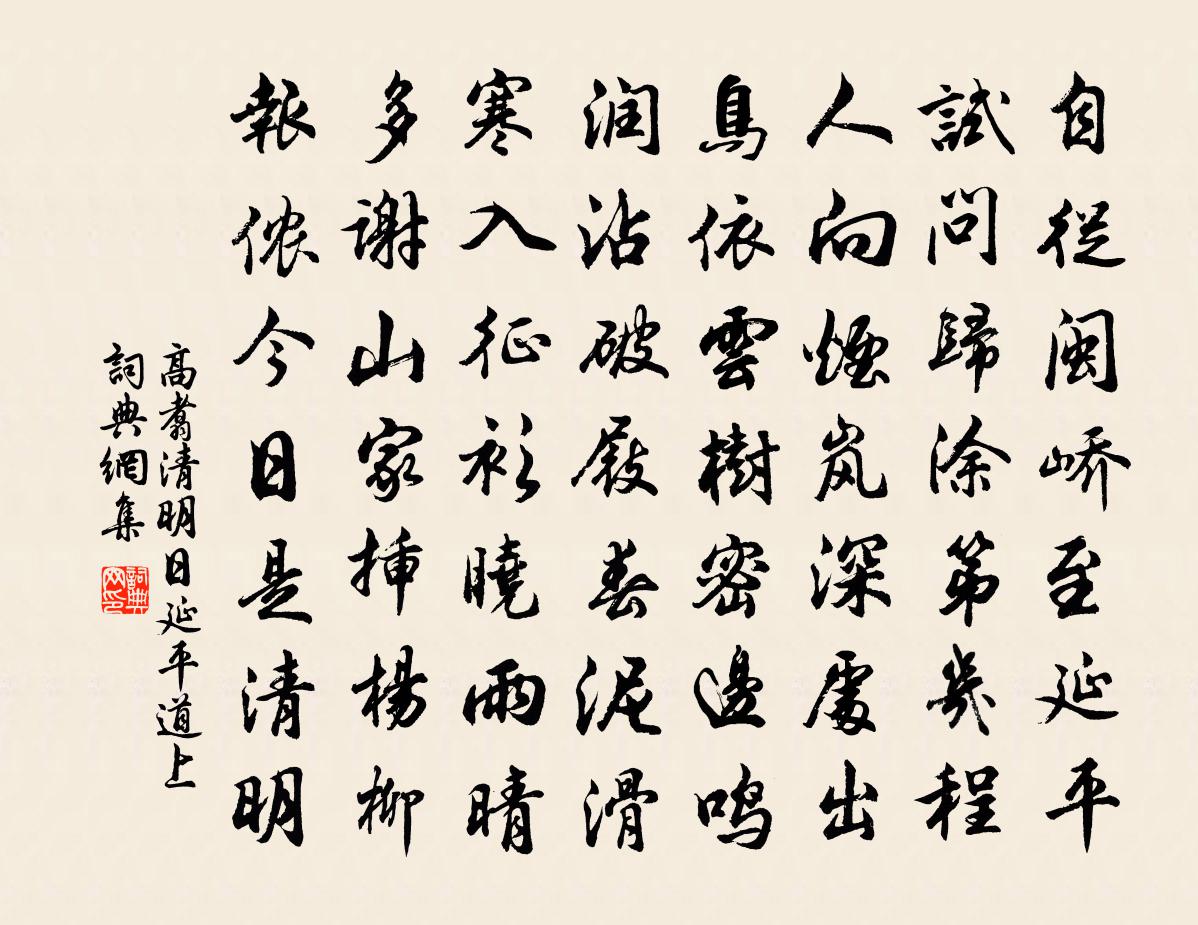 自從闽峤至延平
試問歸涂第幾程
人向煙岚深處出
鳥依雲樹密邊鸣
润沾破屐春泥滑
寒入征衫曉雨晴
多謝山家插楊柳
報侬今日是清明
高翥清明日延平道上
詞典網集
詞典
网印